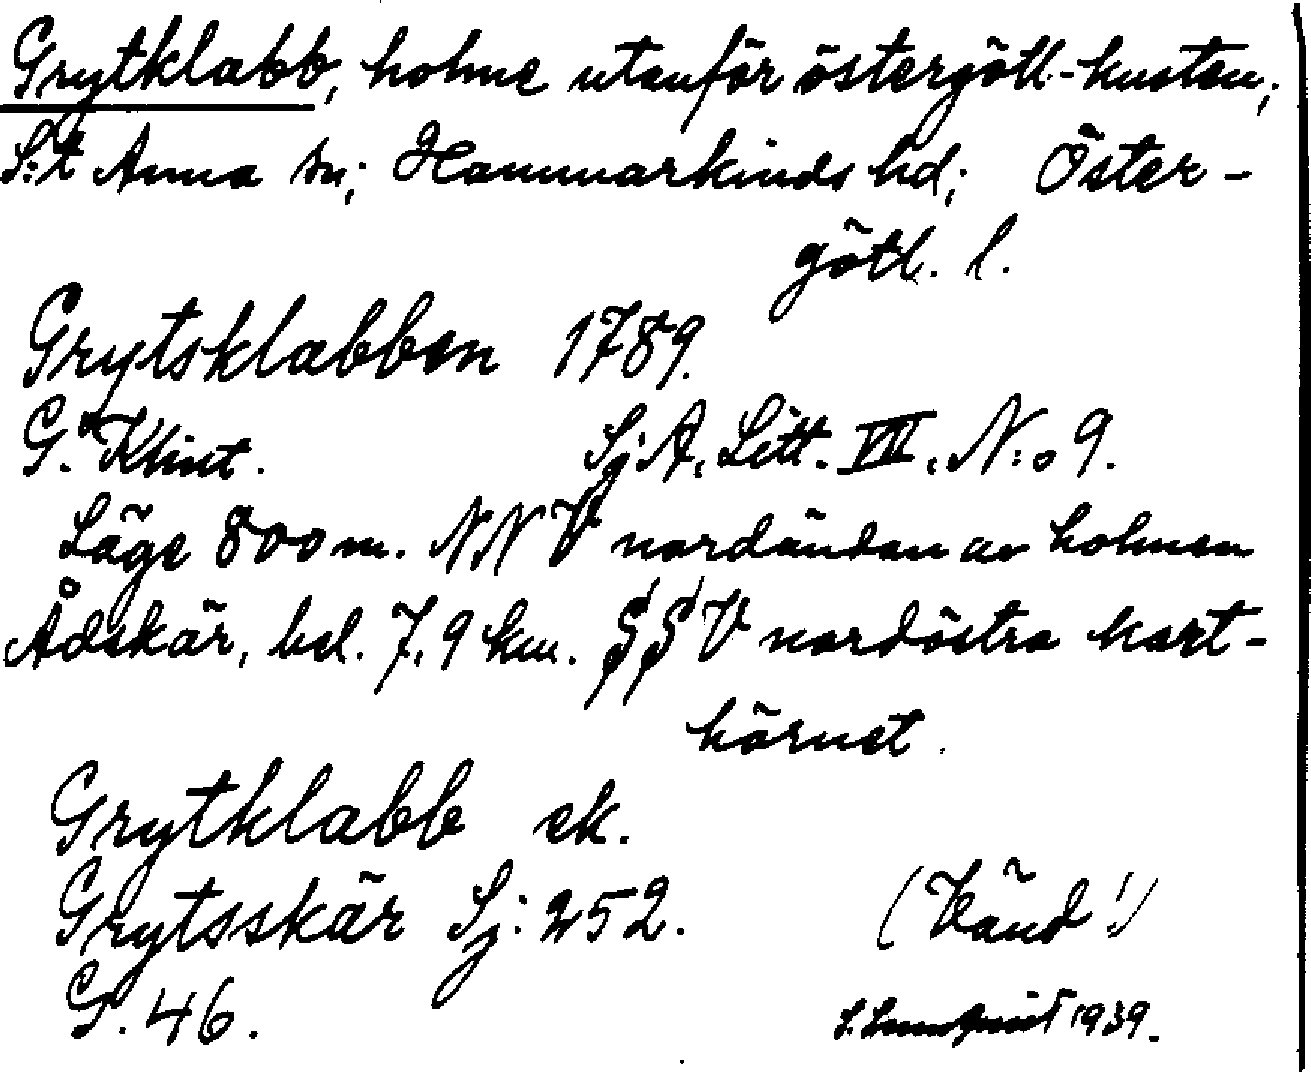 Grytklabb, holme utanför östergötl.-kusten;
S:t Anna sn; Hammarkinds hd; Öster-
götl. l.
Grytsklabben 1789.
G. Klint. Sj. A. Litt. VII. N:o 9.
Läge 800 m. NNV nordändan av holmen
Ådskär, bel. 7,9 km. SSV nordöstra kart-
hörnet.
Grytklabb ek.
Grytsskär Sj: 252. (Vänd!)
G. 46. S. Lundqvist 1939.